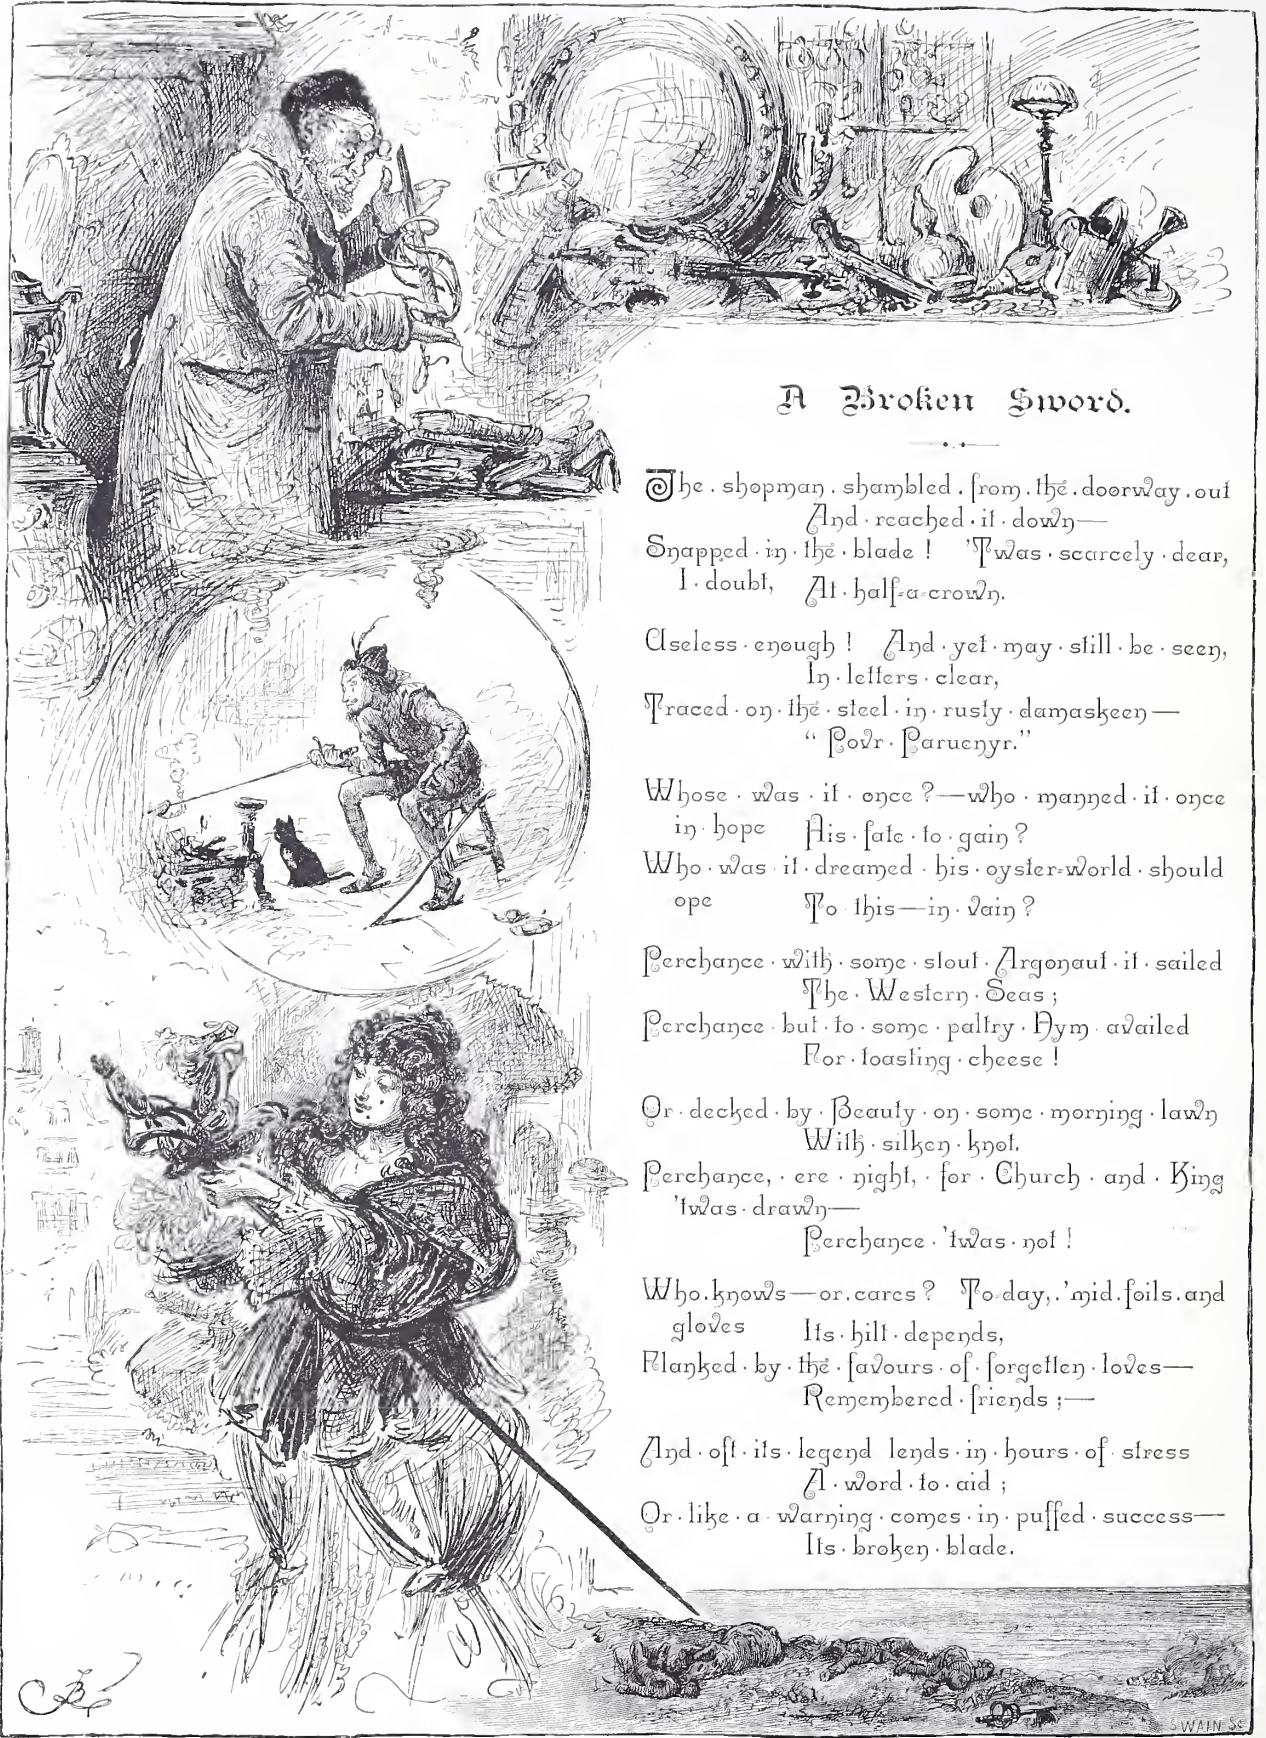 A Broken Sword.
The shopman shambled from the doorway out
And reached it down—
Snapped in the blade! 'Twas scarcely dear,
I doubt, At half-a-crown.
Useless enough! And yet may still be seen,
In letters clear,
Traced on the steel in rusty damaskeen—
“Povr Paruenyr.”
Whose was it once?—who manned it once
in hope His fate to gain?
Who was it dreamed his oyster-world should
ope To this—in vain?
Perchance with some stout Argonaut it sailed
The Western Seas;
Perchance but to some paltry Nym availed
For toasting cheese!
Or decked by Beauty on some morning lawn
With silken knot,
Perchance, ere night, for Church and King
'twas drawn—
Perchance 'twas not!
Who knows—or cares? To-day, 'mid foils and
gloves Its hilt depends,
Flanked by the favours of forgotten loves—
Remembered friends;—
And oft its legend lends in hours of stress
A word to aid;
Or like a warning comes in puffed success—
Its broken blade.
SWAIN Sc